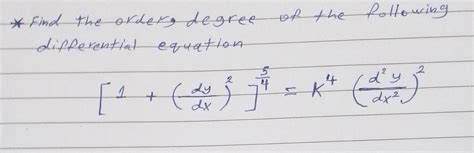 * Find the order, degree of the following
differential equation
[ 1 + (dy/dx)² ]^(5/4) = K⁴ (d²y/dx²)²